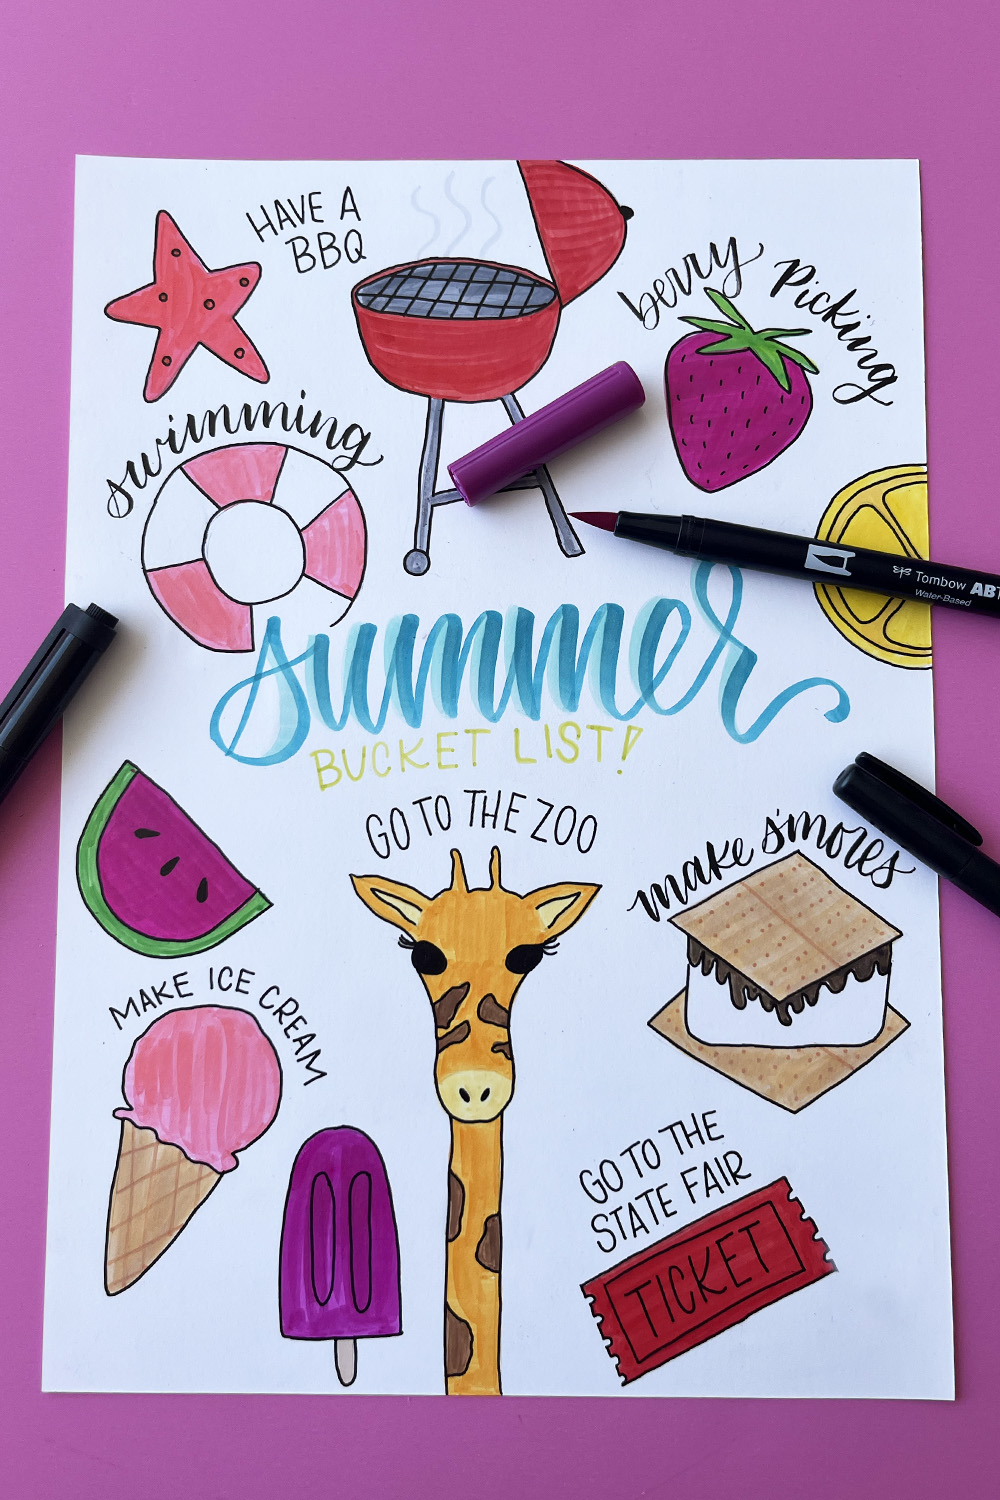 HAVE A
BBQ
berry Picking
swimming
Tombow ABT
Water-Based
summer
BUCKET LIST!
GO TO THE ZOO
make s'mores
MAKE ICE CREAM
GO TO THE
STATE FAIR
TICKET